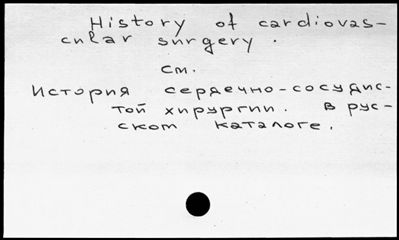 History of cardiovas-
cular surgery.
см.
История сердечно-сосудис-
той хирургии. В рус-
ском каталоге.